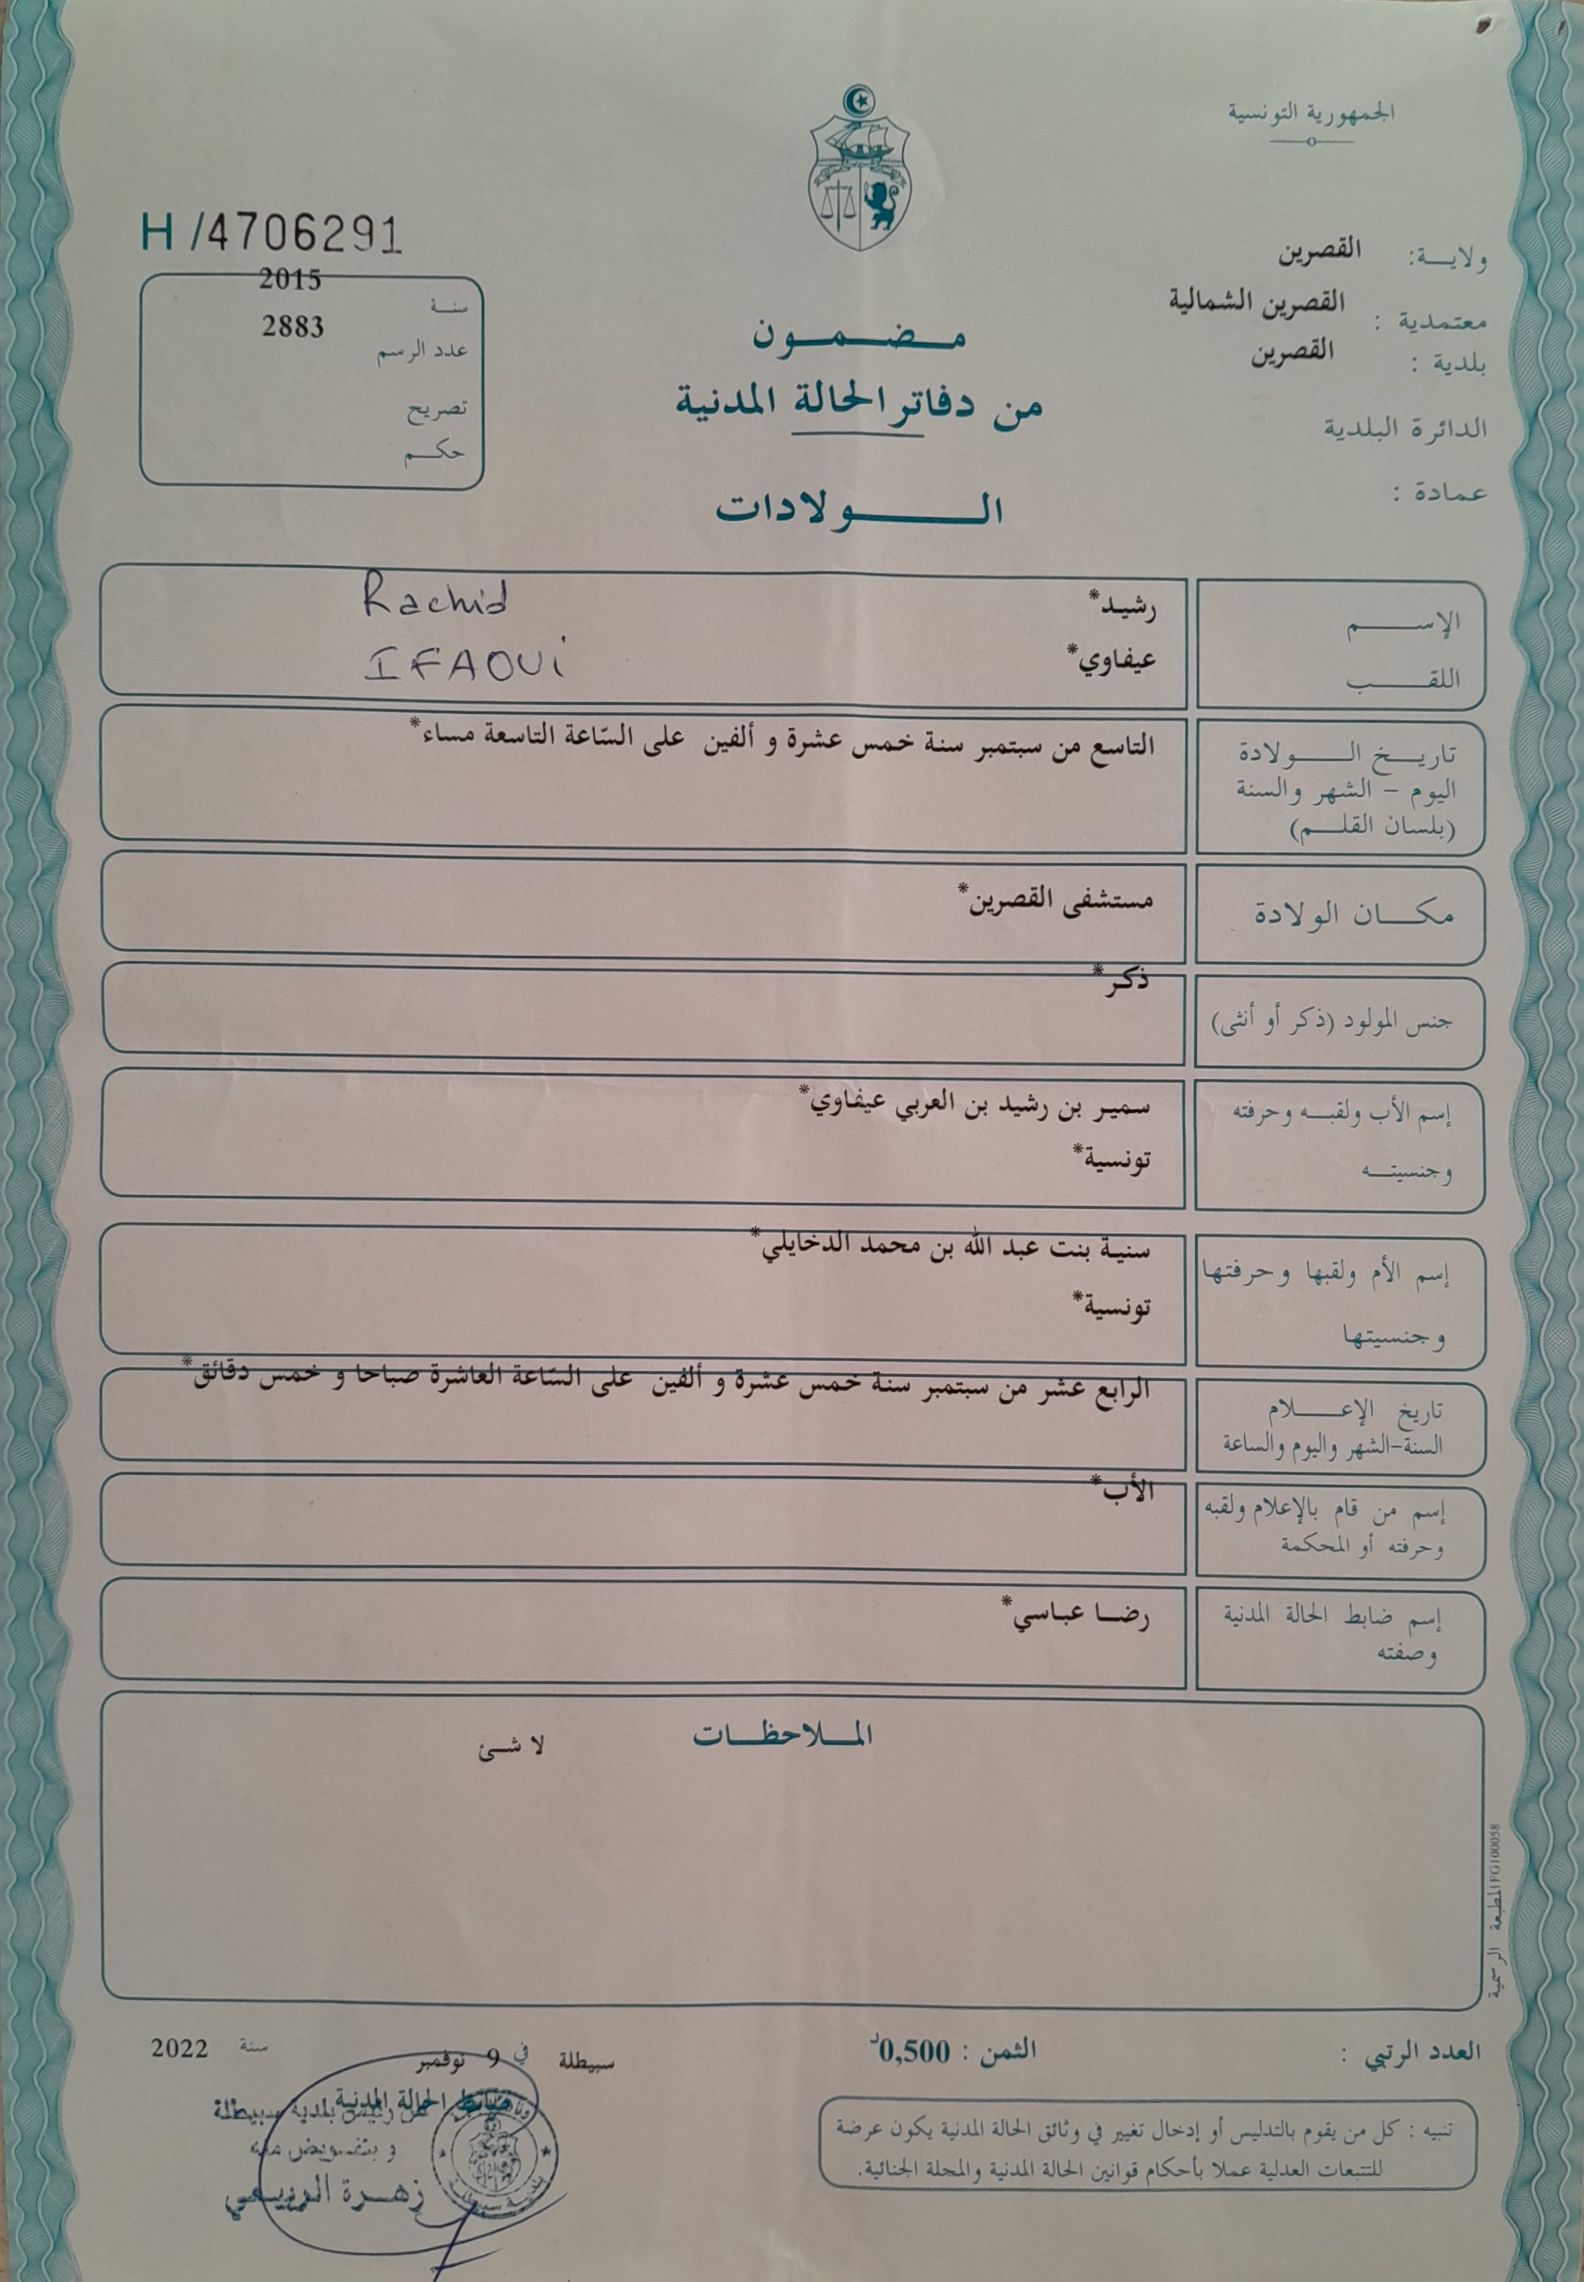 الجمهورية التونسية
ولاية: القصرين
معتمدية : القصرين الشمالية
بلدية : القصرين
الدائرة البلدية
عمادة :
H /4706291
سنة 2015
عدد الرسم 2883
تصريح
حكم
مضمون
من دفاتر الحالة المدنية
الولادات
الإسم رشيد* Rachid
اللقب عيفاوي* IFAOUi
تاريخ الولادة
اليوم - الشهر والسنة
(بلسان القلم)
التاسع من سبتمبر سنة خمس عشرة و ألفين على السّاعة التاسعة مساء*
مكان الولادة مستشفى القصرين*
جنس المولود (ذكر أو أنثى) ذكر*
إسم الأب ولقبه وحرفته سمير بن رشيد بن العربي عيفاوي*
وجنسيته تونسية*
إسم الأم ولقبها وحرفتها سنية بنت عبد الله بن محمد الدخايلي*
وجنسيتها تونسية*
تاريخ الإعلام
السنة-الشهر واليوم والساعة
الرابع عشر من سبتمبر سنة خمس عشرة و ألفين على السّاعة العاشرة صباحا و خمس دقائق*
إسم من قام بالإعلام ولقبه
وحرفته أو المحكمة
الأب*
إسم ضابط الحالة المدنية
وصفته
رضا عباسي*
الملاحظات
لا شئ
المطبعة الرسمية FG100058
العدد الرتبي :
الثمن : 0,500د
سبيطلة في 9 نوفمبر سنة 2022
ضابط الحالة المدنية
عن رئيس بلدية سبيطلة
و بتفويض منه
زهرة
بلدية سبيطلة
تنبيه : كل من يقوم بالتدليس أو إدخال تغيير في وثائق الحالة المدنية يكون عرضة
للتتبعات العدلية عملا بأحكام قوانين الحالة المدنية والمجلة الجنائية.